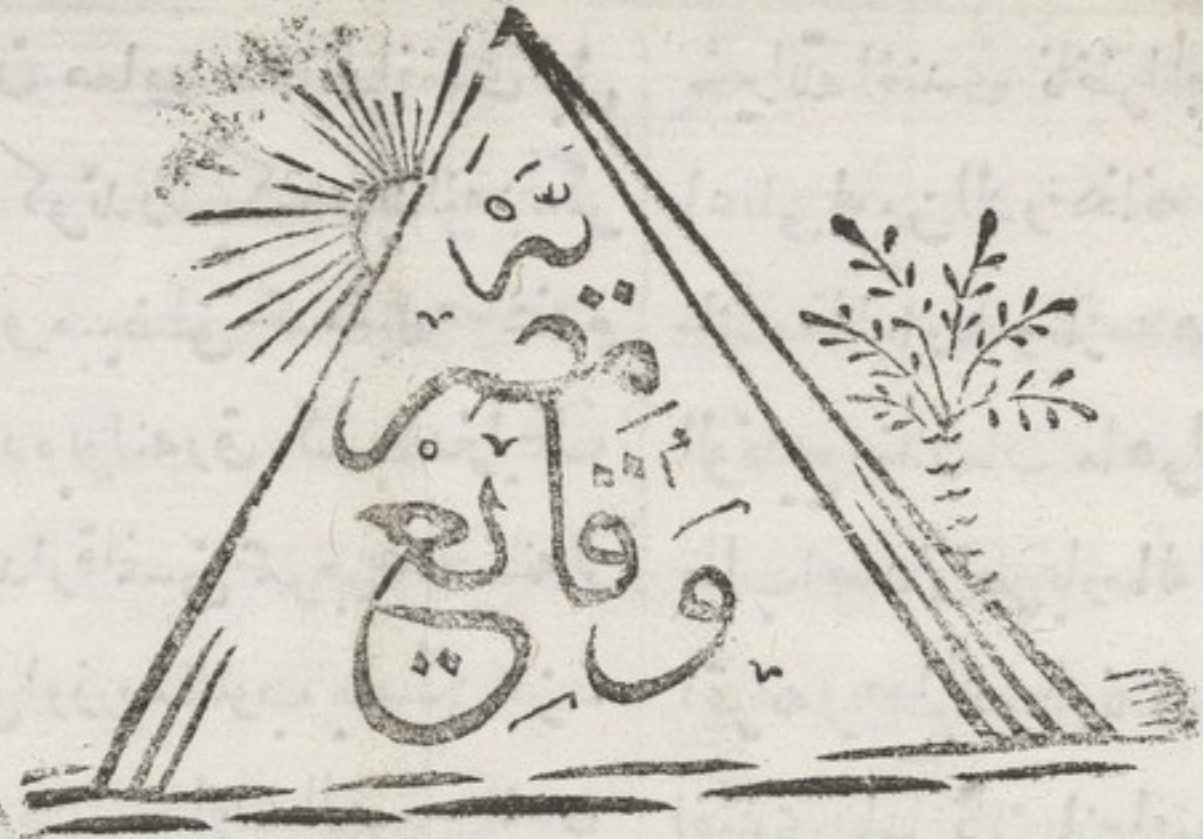 وقايع
مصريّة